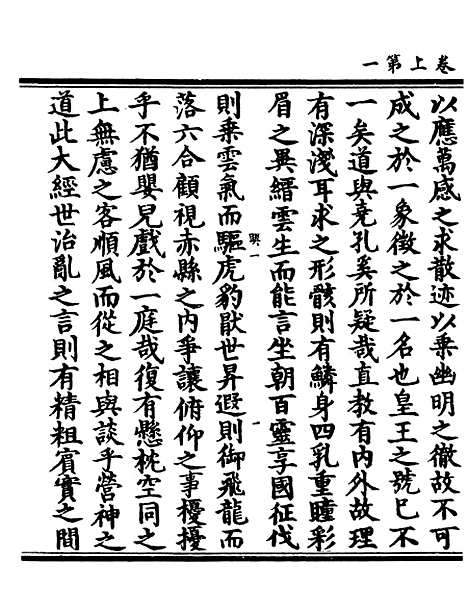 卷上第一
以應萬感之求散迹以乗幽明之徹故不可
成之於一象徵之於一名也皇王之號已不
一矣道與堯孔奚所疑哉直教有内外故理
有深淺耳求之形骸則有鱗身四乳重瞳彩
眉之異縉雲生而能言坐朝百靈享國征伐
則乗雲氣而驅虎豹猒世昇遐則御飛龍而
落六合顧視赤縣之内爭讓俯仰之事擾擾
乎不猶嬰兒戲於一庭哉復有懸枕空同之
上無慮之客順風而從之相與談乎營神之
道此大經世治亂之言則有精粗賔實之間